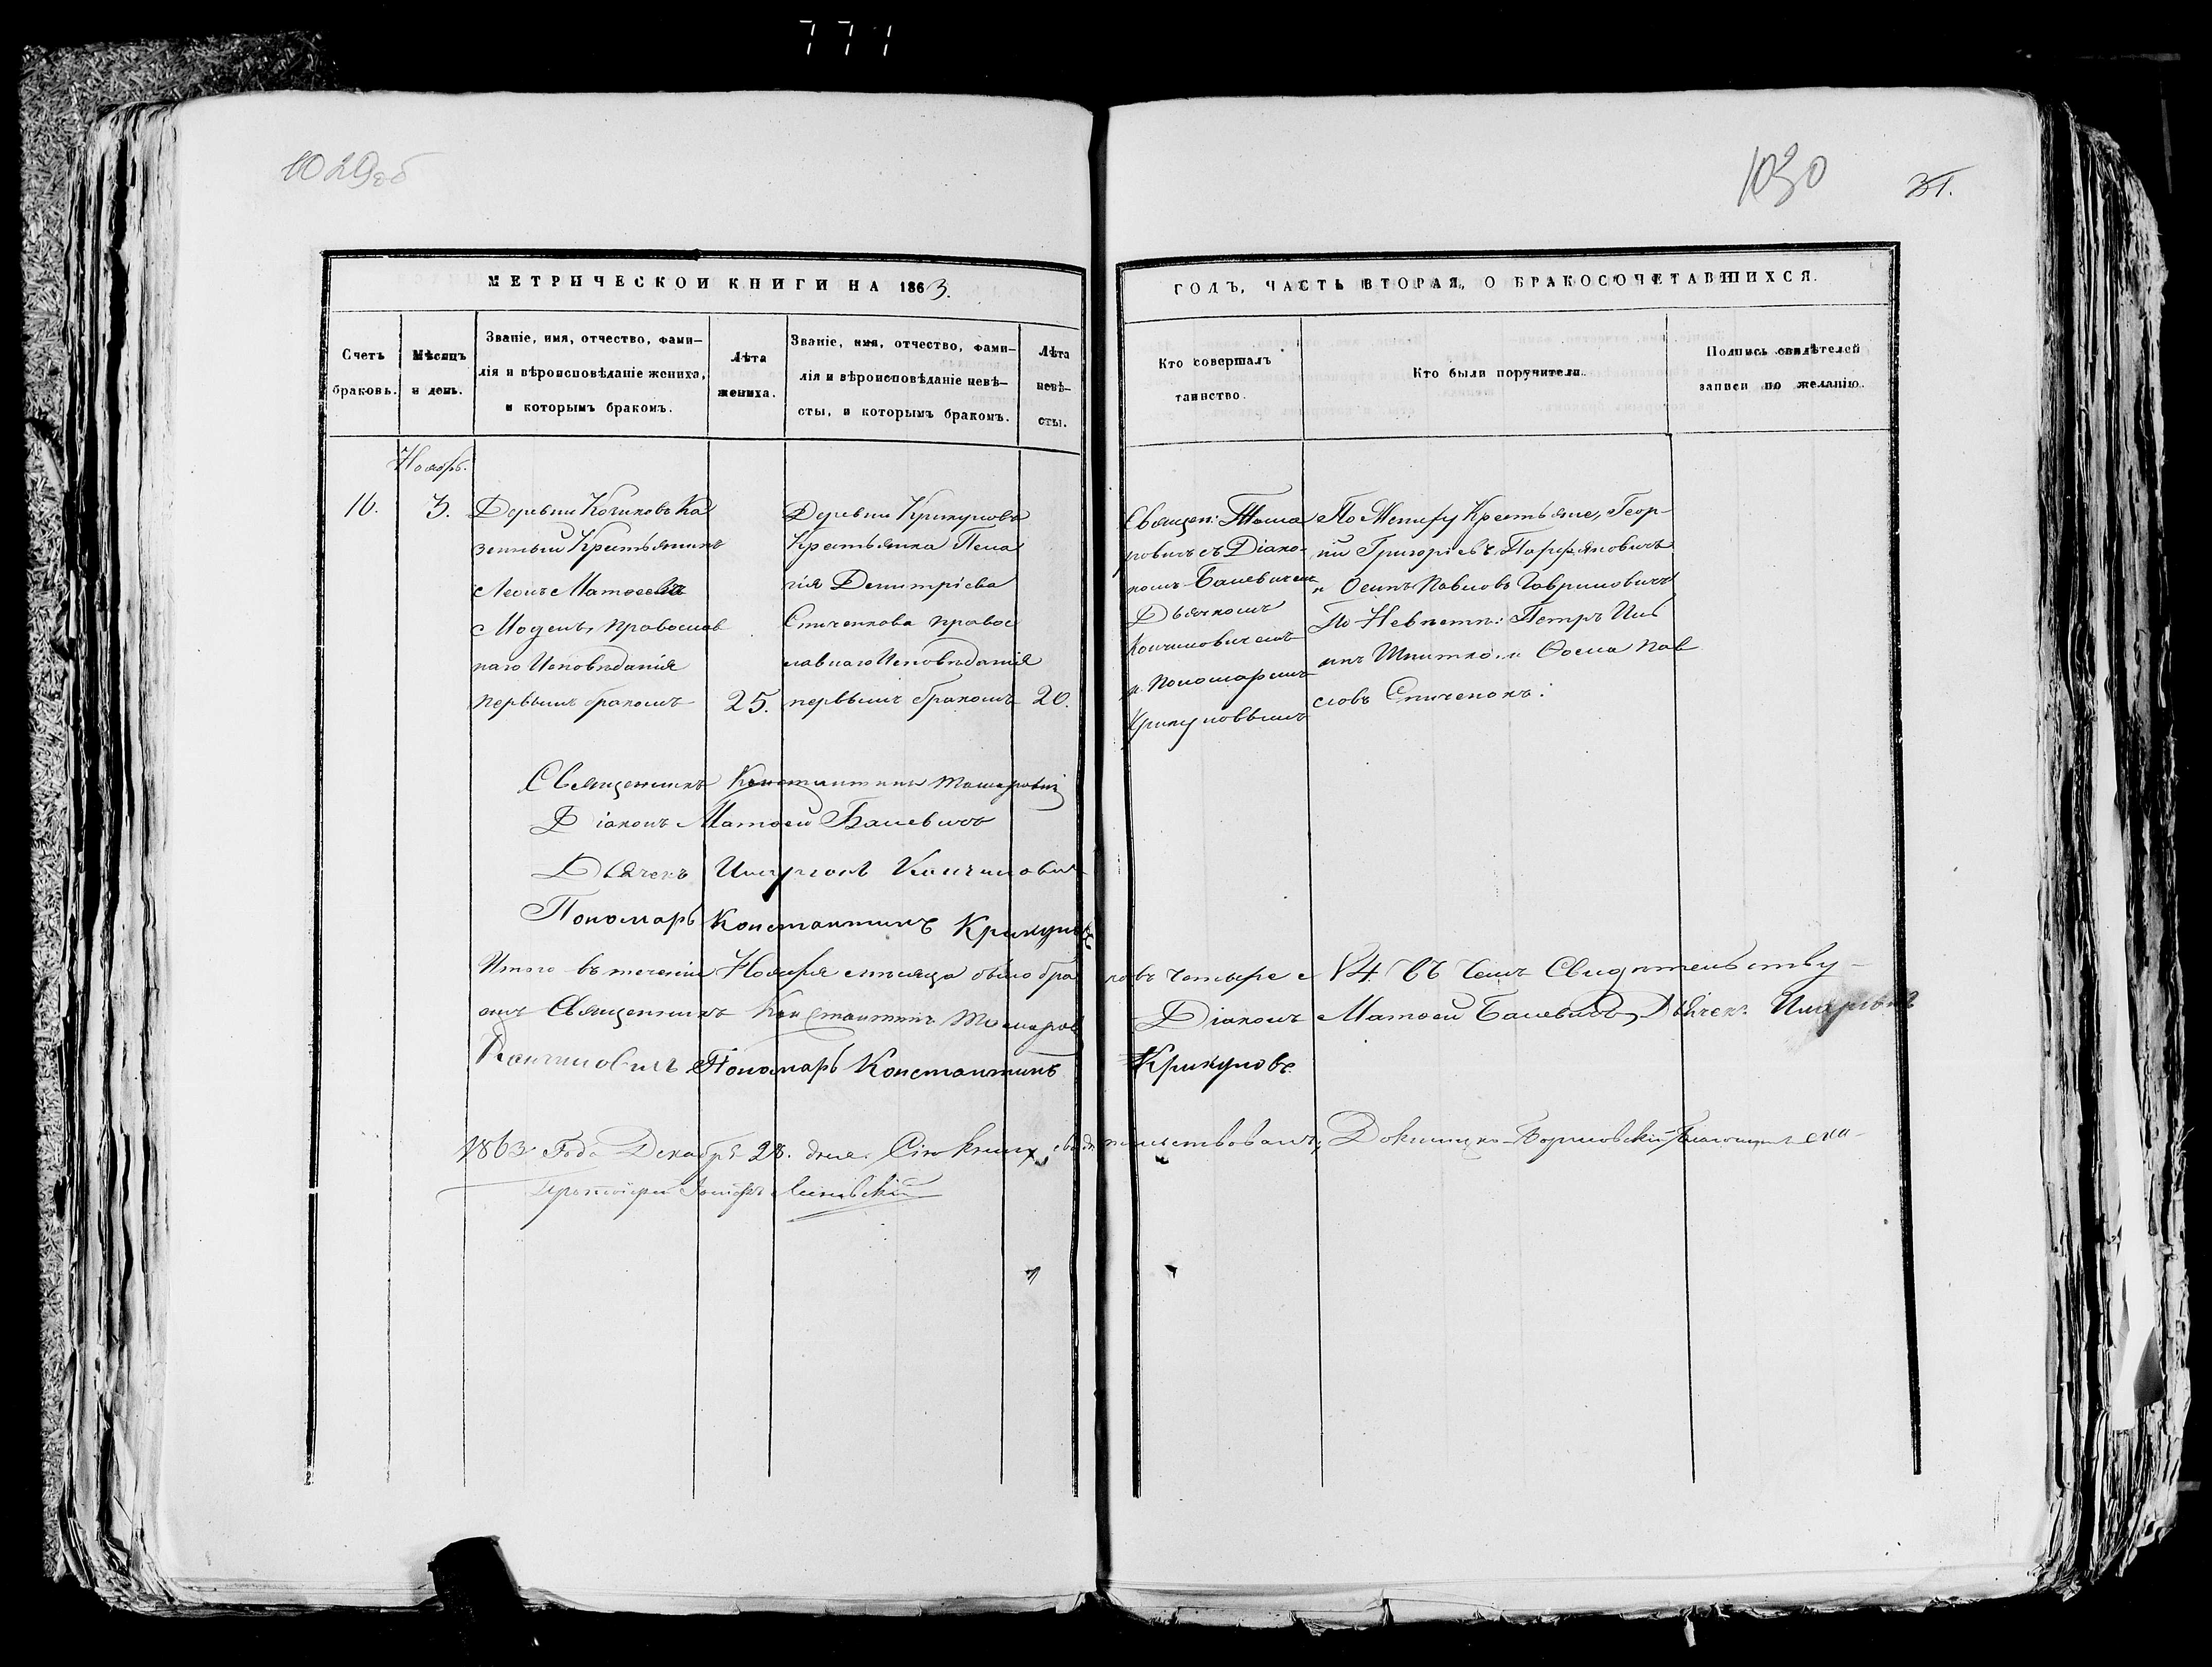 771
1029об
1030
31.
МЕТРИЧЕСКОЙ КНИГИ НА 1863.
ГОДЪ, ЧАСТЬ ВТОРАЯ, О БРАКОСОЧЕТАВШИХСЯ.
Счетъ
браковъ.
Мѣсяцъ
и день.
Званіе, имя, отчество, фами-
лія и вѣроисповѣданіе жениха,
и которымъ бракомъ.
Лѣта
жениха.
Званіе, имя, отчество, фами-
лія и вѣроисповѣданіе невѣ-
сты, и которымъ бракомъ.
Лѣта
невѣ-
сты.
Кто совершалъ
таинство.
Кто были поручители.
Подпись свидѣтелей
записи по желанію.
Ноябрь.
16.
3.
Деревни Кочиковъ Ка
зенный Крестьянинъ
Леонъ Матѳеевъ
православ
наго Исповѣданія
первымъ бракомъ
25.
Деревни Крикуновъ
Крестьянка Пела
гія Димитріева
Спиченкова правос
лавнаго Исповѣданія
первымъ бракомъ
20.
Священ: Тома
ровичъ съ Діако-
номъ Балевичемъ
Дьячкомъ
Кончиловичемъ
и Пономаремъ
Крикуновымъ
По Жениху Крестьяне, Геор-
гій Григорьевъ Парфяновичъ
и Осипъ Павловъ Гавриловичъ
По Невѣстѣ: Петръ Иль
инъ Шнитко и Ѳома Пав
ловъ Спиченокъ.
Священникъ Константинъ Томаровичъ
Діаконъ Матѳей Балевичъ
Дьячекъ Иларіонъ Кончиловичъ
Пономарь Константинъ Крикуновъ
Итого въ теченіи Ноября мѣсяца было бра ковъ четыре 4. въ чемъ Свидѣтельству-
емъ Священникъ Константинъ Томаров Діаконъ Матѳей Балевичъ, Дьячекъ Иларіонъ
Кончиловичъ Пономарь Константинъ Крикуновъ.
1863 Года Декабря 28. дня. Сію книгу свидѣ тельствовалъ, Докшицко-Борисовскій
Протоіерей Іосифъ